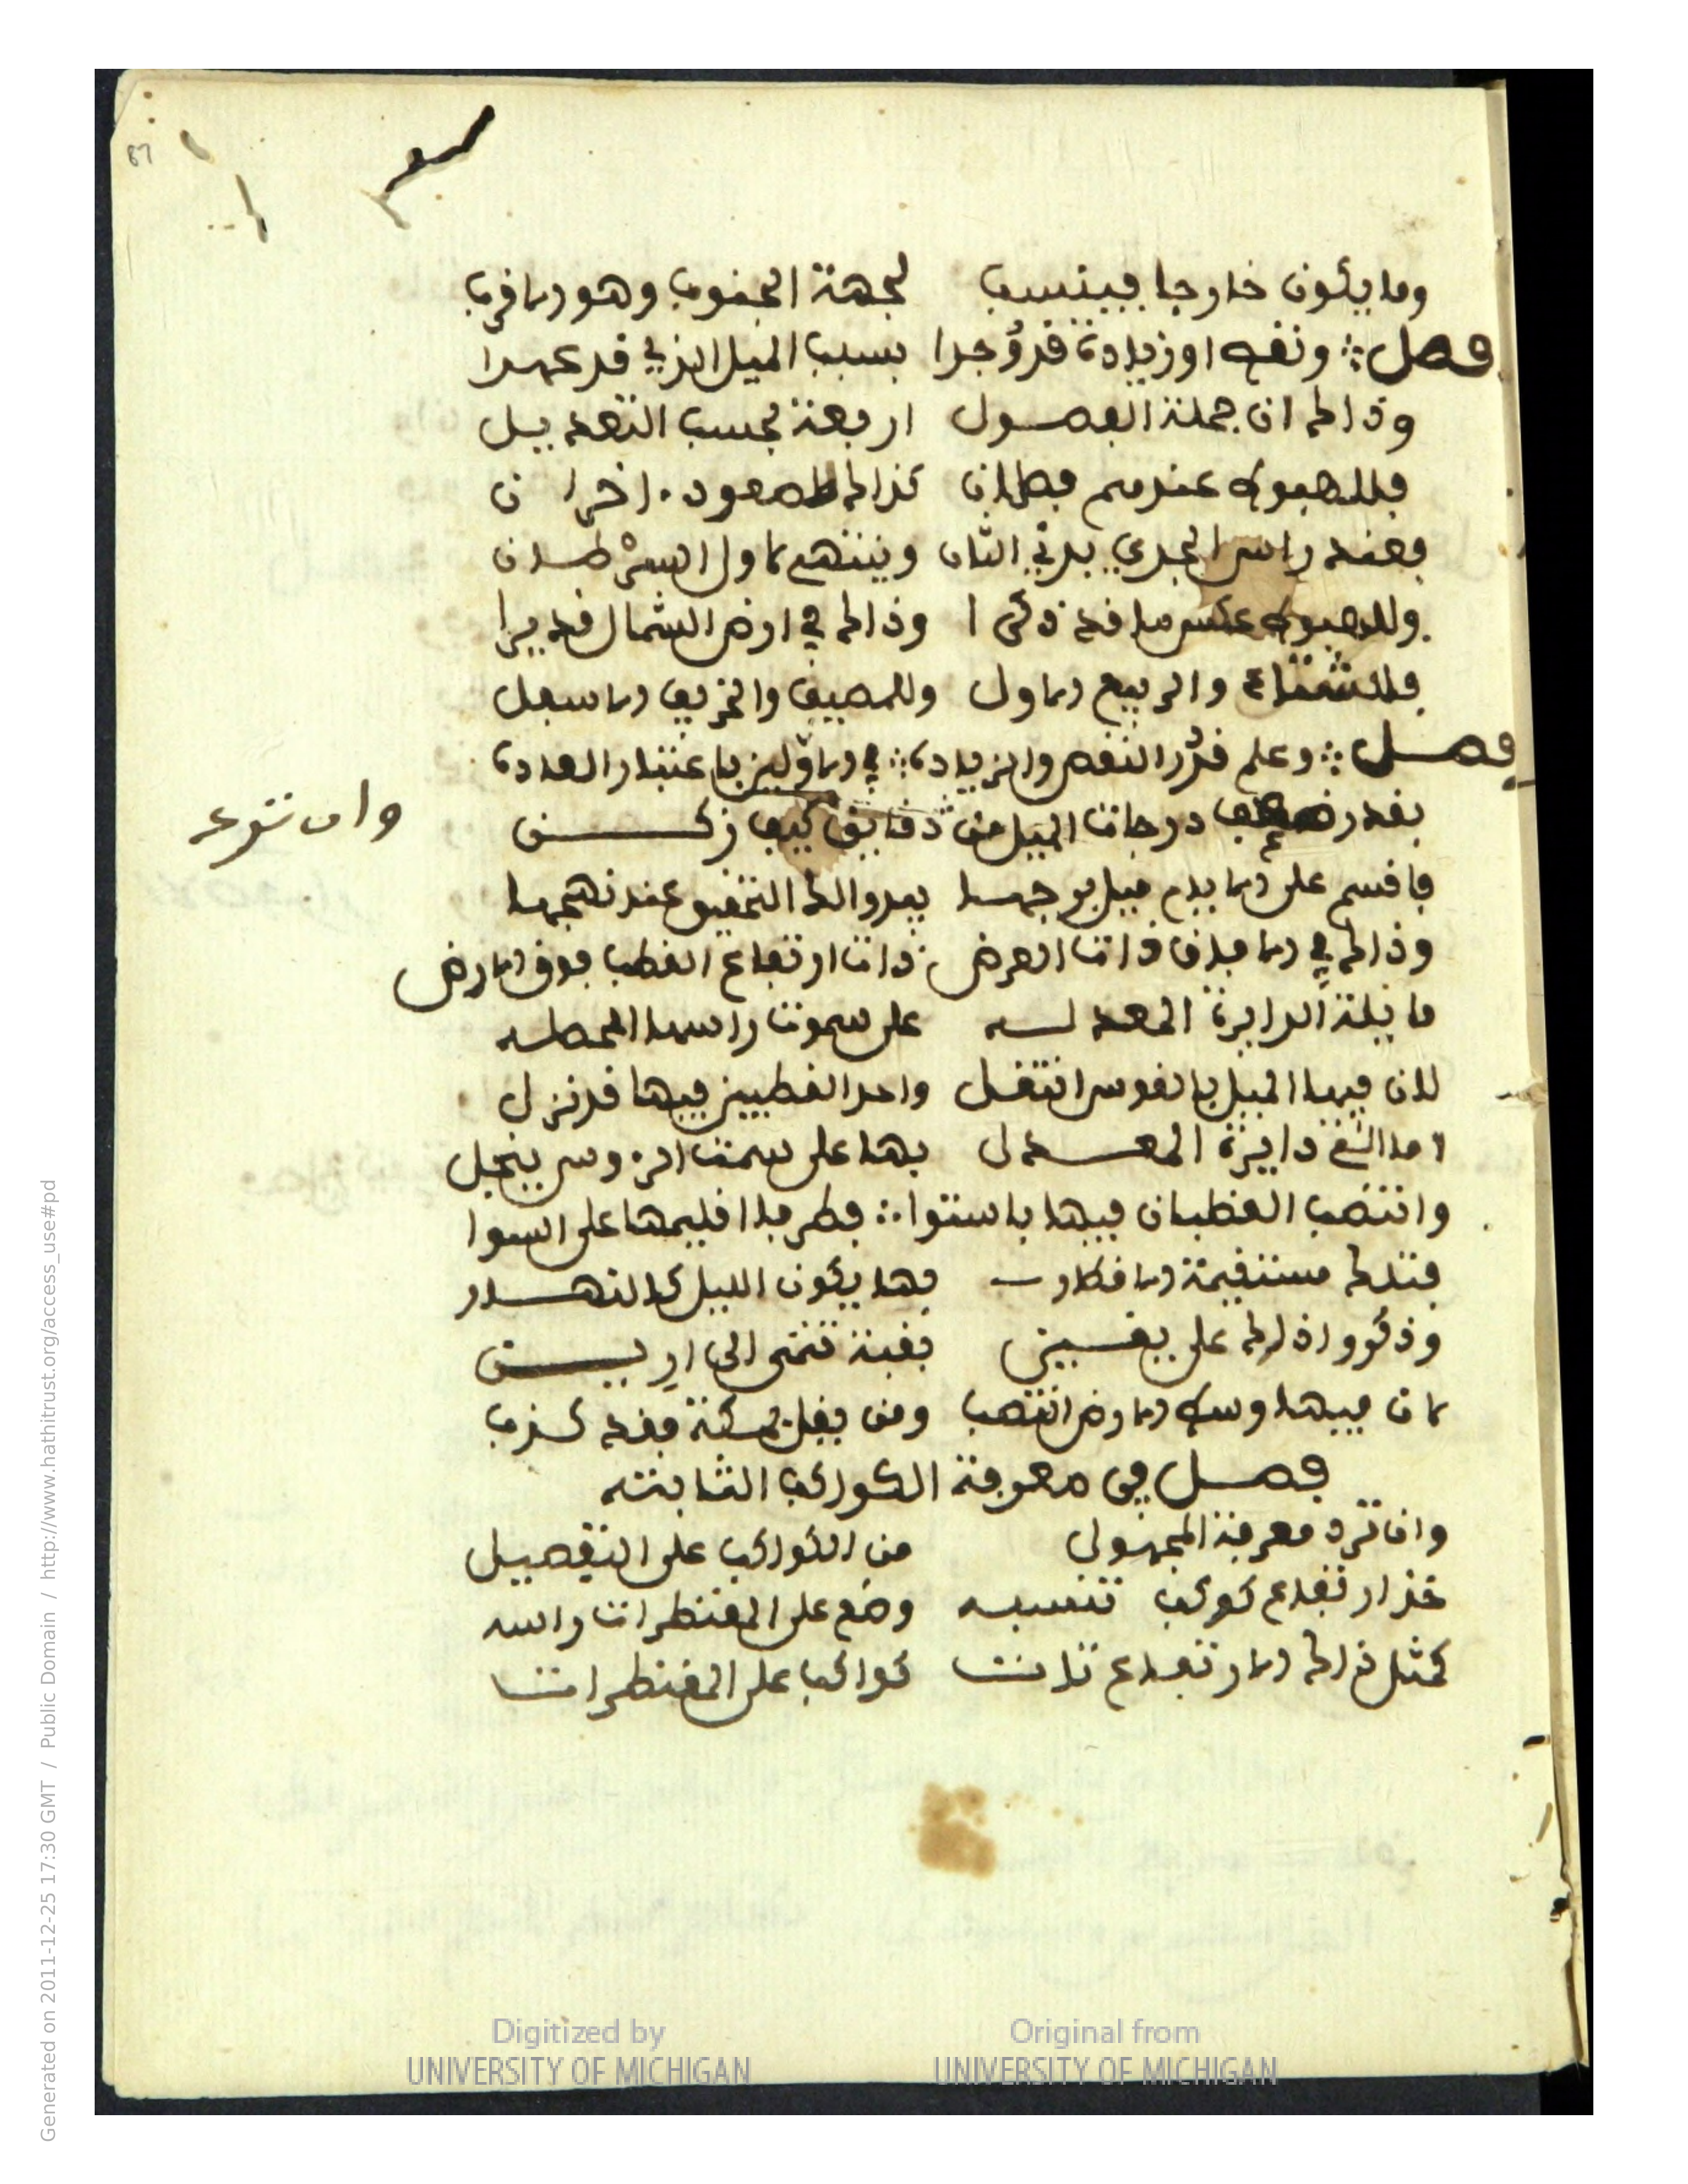 87
وما يكون خارجا فينسب لجهة الجنوب وهو الاقرب
فصل ونقص او زيادة قدر وجدا بسبب الميل الذي قد عهدا
وذالك ان جملة الفصول اربعة بحسب التعديل
فللهبوط عندهم فصلان كذالك الصعود اخران
فعند راس الجدي بدئ الثان وينتهي لاول السرطان
وللهبوط عكس ما قد ذكرا وذالك في ارض الشمال قد يرا
فللشتاء والربيع الاول وللمصيف والخريف الاسفل
فصل وعلم قدر النقص والزيادة في الاولين باعتبار العادة
بقدر ضعف درجات الميل من دقايق كيف زكن
فاقسم على الايام ميل برجها يبدو لك التحقيق عند نهجها
وذالك في الافاق ذات العرض ذات ارتفاع القطب فوق الارض
مايلة الدايرة المعدله على سموت راسها المحصله
لان فيها الميل بالقوس انتقل واحد القطبين فيها قد نزل
اما التي دايرة المعدل بها على سمت الرءوس ينجل
وانتصب القطبان فيها باستوا فطر فا اقليمها على السوا
فتلك مستقيمة الاقطار بها يكون الليل كالنهار
وذكروا ذالك على يقين بقبة تنمى الى ارين
لان فيها وسط الارض انتصب ومن يقل بمكة فقد كذب
فصل في معرفة الكواكب الثابته
وان ترد معرفة المجهول من الكواكب على التفصيل
خذ ارتفاع كوكب تنسبه وضع على المقنطرات راسه
كمثل ذالك الارتفاع تلات كواكبا على المقنطرات
Digitized by UNIVERSITY OF MICHIGAN
Original from UNIVERSITY OF MICHIGAN
Generated on 2011-12-25 17:30 GMT / Public Domain / http://www.hathitrust.org/access_use#pd